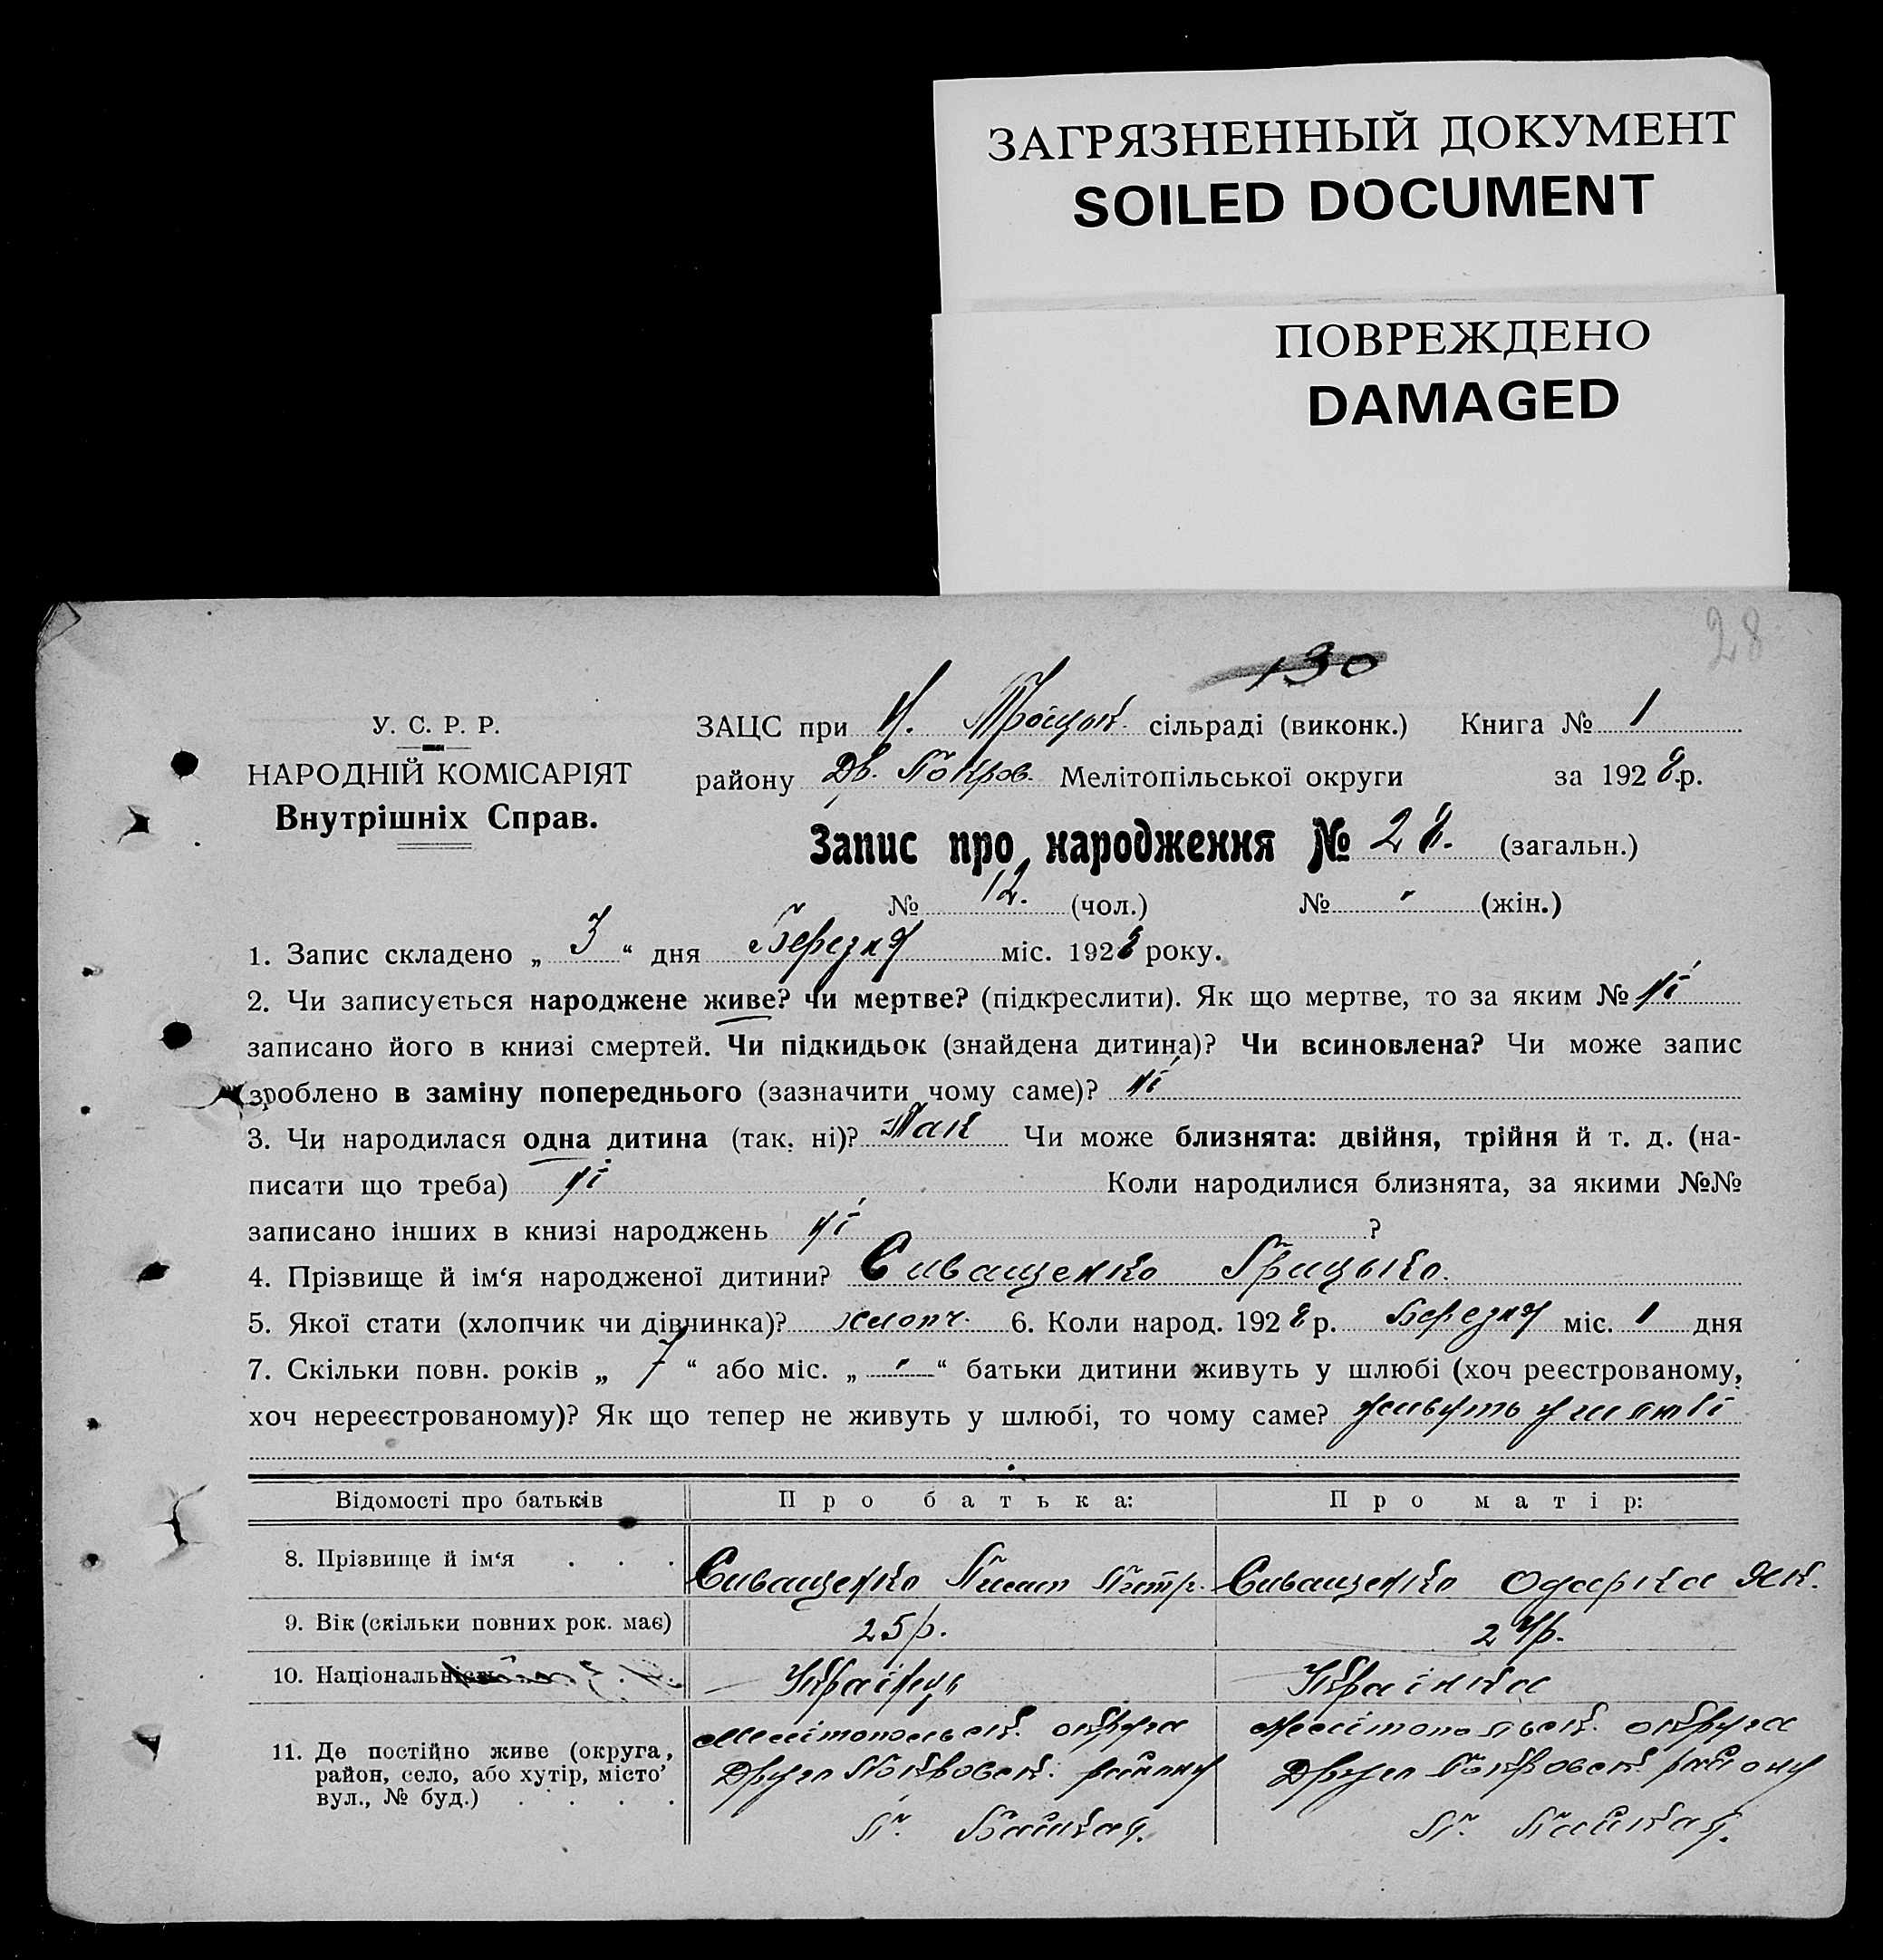 ЗАГРЯЗНЕННЫЙ ДОКУМЕНТ
SOILED DOCUMENT
ПОВРЕЖДЕНО
DAMAGED
28
130
У. С. Р. Р.
НАРОДНІЙ КОМІСАРІЯТ
Внутрішніх Справ.
ЗАЦС при Н. Троцьк. сільраді (виконк.) Книга № 1
району Др. Покров. Мелітопільської округи за 1928 р.
Запис про народження № 28. (загальн.)
№ 12. (чол.) № - (жін.)
1. Запис складено „ 3 “ дня Березня міс. 1928 року.
2. Чи записується народжене живе? чи мертве? (підкреслити). Як що мертве, то за яким № ні
записано його в книзі смертей. Чи підкидьок (знайдена дитина)? Чи всиновлена? Чи може запис
зроблено в заміну попереднього (зазначити чому саме)? ні
3. Чи народилася одна дитина (так, ні)? Так Чи може близнята: двійня, трійня й т. д. (на-
писати що треба) ні Коли народилися близнята, за якими №№
записано інших в книзі народжень ні ?
4. Прізвище й ім‘я народженої дитини? Сиващенко Грицько.
5. Якої стати (хлопчик чи дівчинка)? хлопч. 6. Коли народ. 1928 р. Березня міс. 1 дня
7. Скільки повн. років „ 7 “ або міс. „ - “ батьки дитини живуть у шлюбі (хоч реєстрованому,
хоч нереєстрованому)? Як що тепер не живуть у шлюбі, то чому саме? живуть у шлюбі
Відомості про батьків Про батька: Про матір:
8. Прізвище й ім‘я . . . Сиващенко Пилип Петр. Сиващенко Одарка Як.
9. Вік (скільки повних рок. має) 25 р. 24 р.
10. Національність Українець Українка
11. Де постійно живе (округа, район, село, або хутір, місто, вул., № буд.) . . . .
Мелітопольськ. округа Мелітопольськ. округа
Друго Покровськ. району Друго Покровськ району